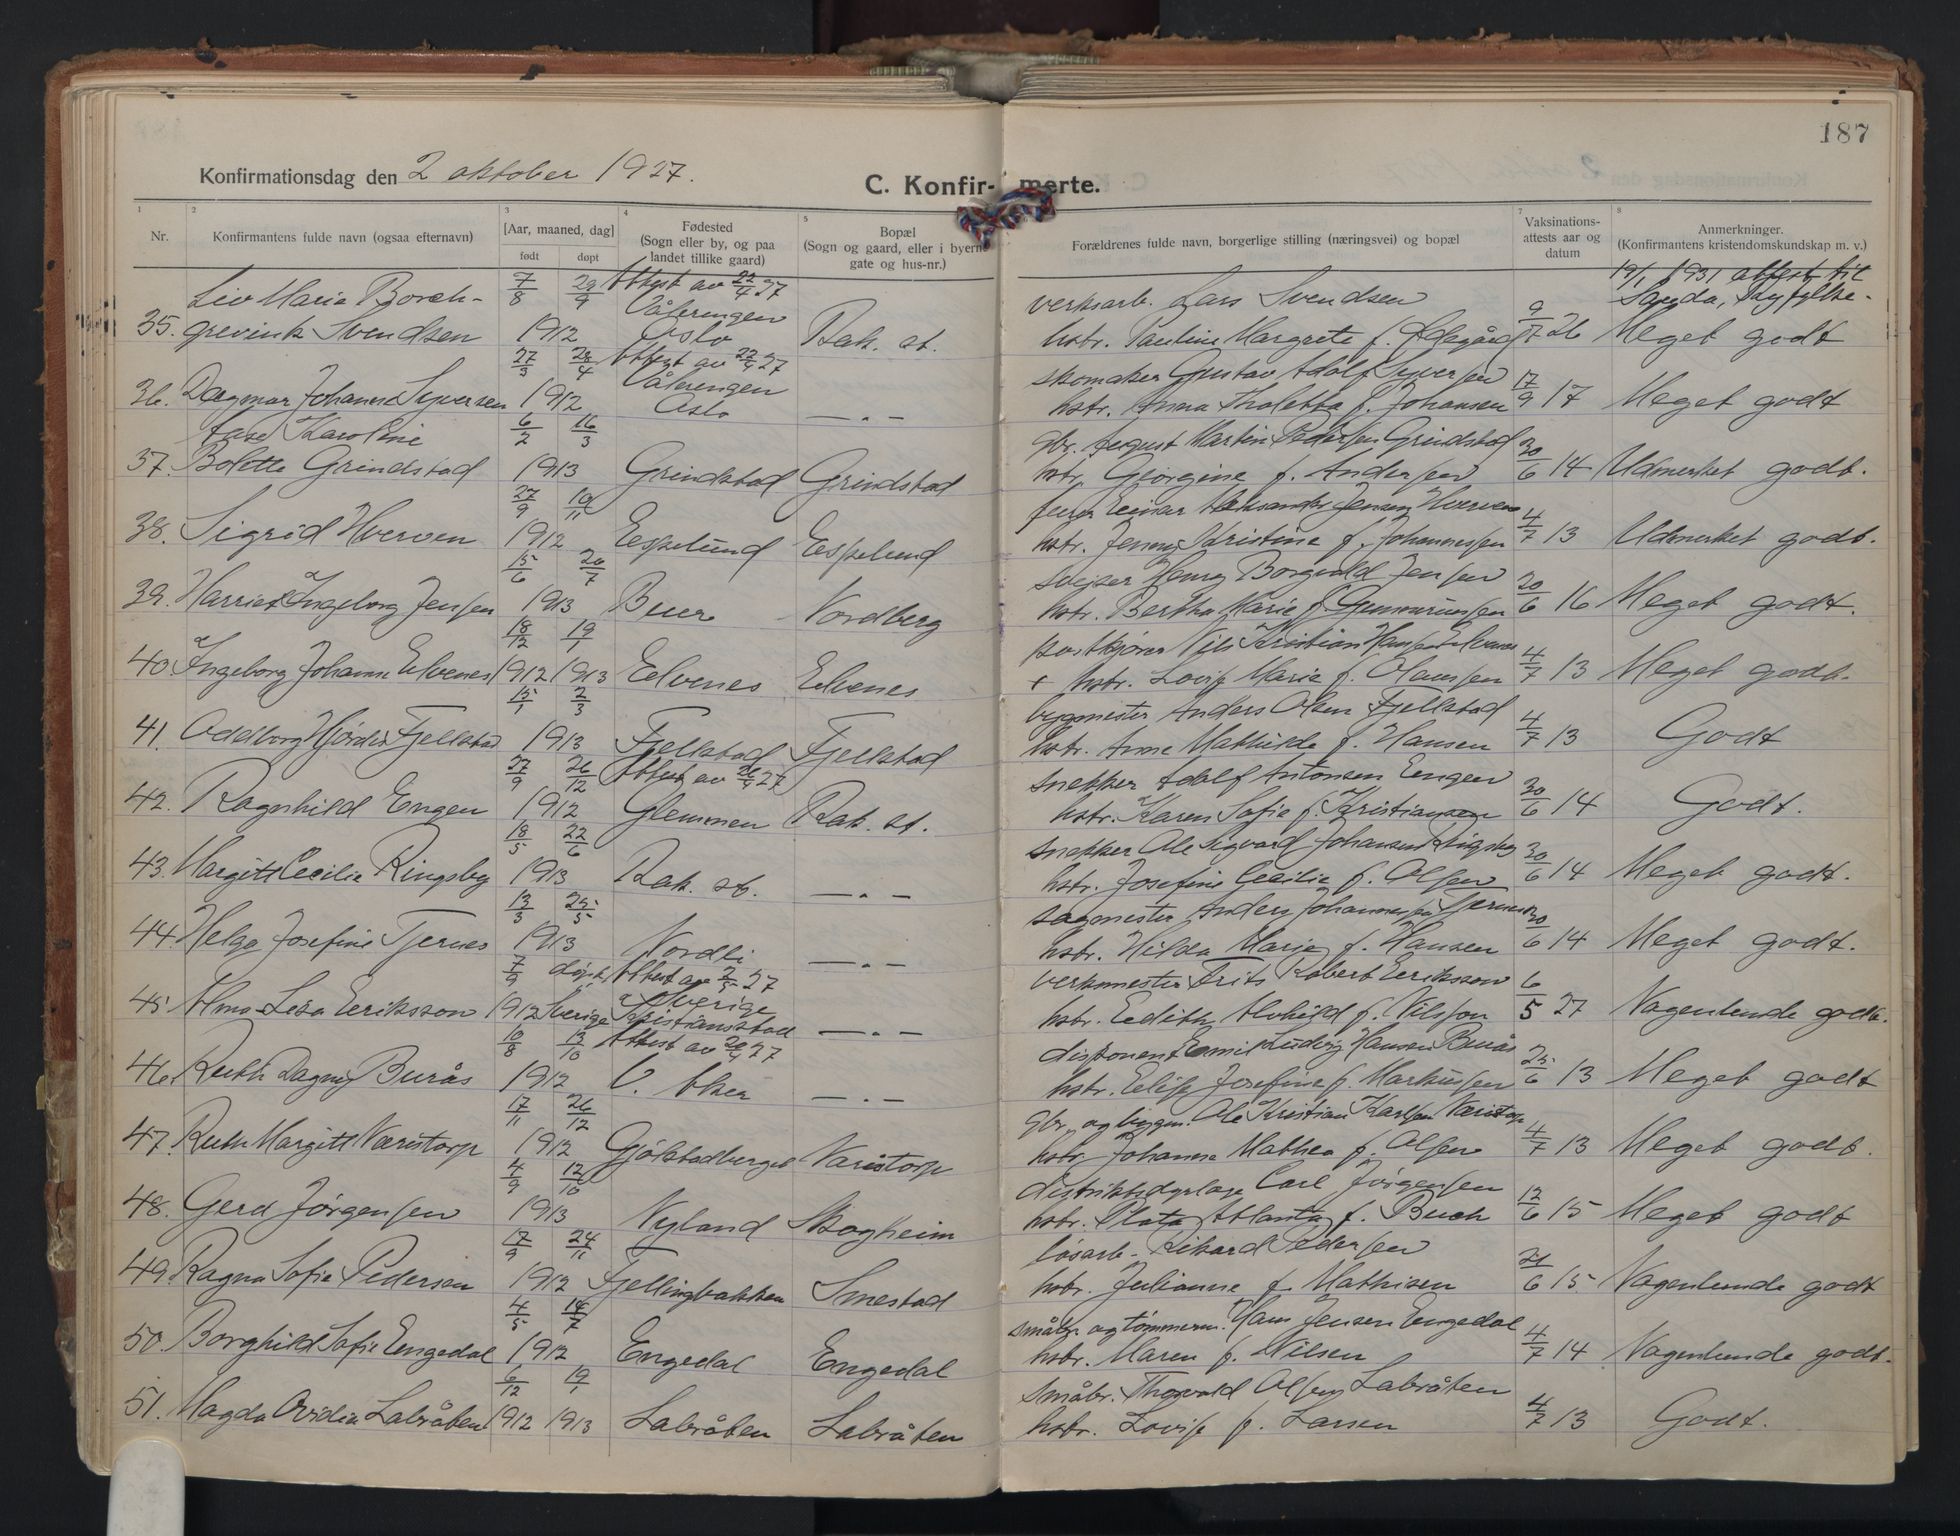 187
Konfirmationsdag den 2 oktober 1927.
C. Konfirmerte.
1 2 3 4 5 7 8
Nr. Konfirmantens fulde navn (ogsaa efternavn) [Aar, maaned, dag] født døpt Fødested (Sogn eller by, og paa landet tillike gaard) Bopæl (Sogn og gaard, eller i byerne gate og hus-nr.) Forældrenes fulde navn, borgerlige stilling (næringsvei) og bopæl Vaksinations-attests aar og datum Anmerkninger. (Konfirmantens kristendomskundskap m. v.)
Liv Marie Borch- 7/8 Attest av 22/4 27 Vålerengen verksarb. Lars Svendsen 19/1 1931 attest til
35. grevink Svendsen 1912 Oslo Rak. st. hstr. Pauline Margrete f. Ødegård 26 Meget godt
27/3 28/4 Attest av 22/4 27 Vålerengen skomaker Gustav Adolf Syversen
36. Dagmar Johanne Syversen 1912 Oslo —„— hstr. Anna f. Johansen 17/9 17 Meget godt
Aase Karoline 6/2 16/3 gbr. August Martin Pedersen Grindstad
37. Bolette Grindstad 1913 Grindstad Grindstad hstr. Georgine f. Andersen 30/6 14 Udmerket godt.
27/9 10/11 Einar Aleksander Jensen Hverven
38. Sigrid Hverven 1912 Eespelund Eespelund hstr. Jenny Kristine f. Johannessen 4/7 13 Udmerket godt.
15/6 20/7 Borgvald Jensen
39. Harriet Ingeborg Jensen 1913 Buer Nordberg hstr. Bertha Marie f. Gunnarussen 30/6 16 Meget godt.
18/12 19/1 postkjører Nils Kristian Hansen Elvenes
40. Ingeborg Johanne Elvenes 1912 1913 Eelvenes Elvenes + hstr. Lovise Marie f. Olaussen 4/7 13 Meget godt.
15/1 2/3 bygmester Anders Olsen Fjellstad
41. Oddborg Hjördis Fjellstad 1913 Fjellstad Fjellstad hstr. Anne Mathilde f. Hansen 4/7 13 Godt
27/9 26/12 Attest av 26/4 27 snekker Adolf Antonsen Engen
42. Ragnhild Engen 1912 Glemmen Rak. st. hstr. Karen Sofie f. Kristiansen 30/6 14 Godt.
18/5 22/6 snekker Ole Sigvard Johansen Ringsby
43. Margitt Cecilie Ringsby 1913 Rak. st. —„— hstr. Josefine Cecilie f. Olsen 30/6 14 Meget godt.
13/3 25/5 sagmester Anders Johannessen Tjernes
44. Helga Josefine Tjernes 1913 Nordli —„— hstr. Hilda Marie f. Hansen 30/6 14 Meget godt.
7/9 døpt i Attest av 2/5 27 Sverige verksmester Frits Robert Eeriksson
45. Alma Lisa Eeriksson 1912 Sverige Kristianstad —„— hstr. Edith Alvhild f. Nilsson 6/5 27 Nogenlunde godt.
10/8 13/10 Attest av 20/4 27 disponent Eemil Ludvig Hansen Burås
46. Ruth Dagny Burås 1912 V. Aker —„— hstr. Elise Josefine f. Markussen 25/6 13 Meget godt
17/11 26/12 gbr. og bygm. Ole Kristian Karlsen Væristorp
47. Ruth Margitt Væristorp 1912 Gjölstadberget Væristorp hstr. Johanne Mathea f. Olsen 4/7 13 Meget godt.
4/9 12/10 distriktsdyrlæge Carl Jörgensen
48. Gerd Jörgensen 1913 Nyland Skogheim hstr. f. Buch 12/6 15 Meget godt
17/9 24/11 løsarb. Rikard Pedersen
49. Ragna Sofie Pedersen 1912 Fjellingbakken Smestad hstr. Julianne f. Mathisen 21/6 15 Nogenlunde godt
4/5 14/7 småbr og tömmerm. Hans Jensen Eengedal
50. Borghild Sofie Eengedal 1912 Engedal Engedal hstr. Maren f. Nilsen 4/7 14 Nogenlunde godt.
6/12 19/1 småbr. Thorvald Olsen Labråten
51. Magda Ovidia Labråten 1912 1913 Labråten Labråten hstr. Lovise f. Larsen 4/7 13 Godt.